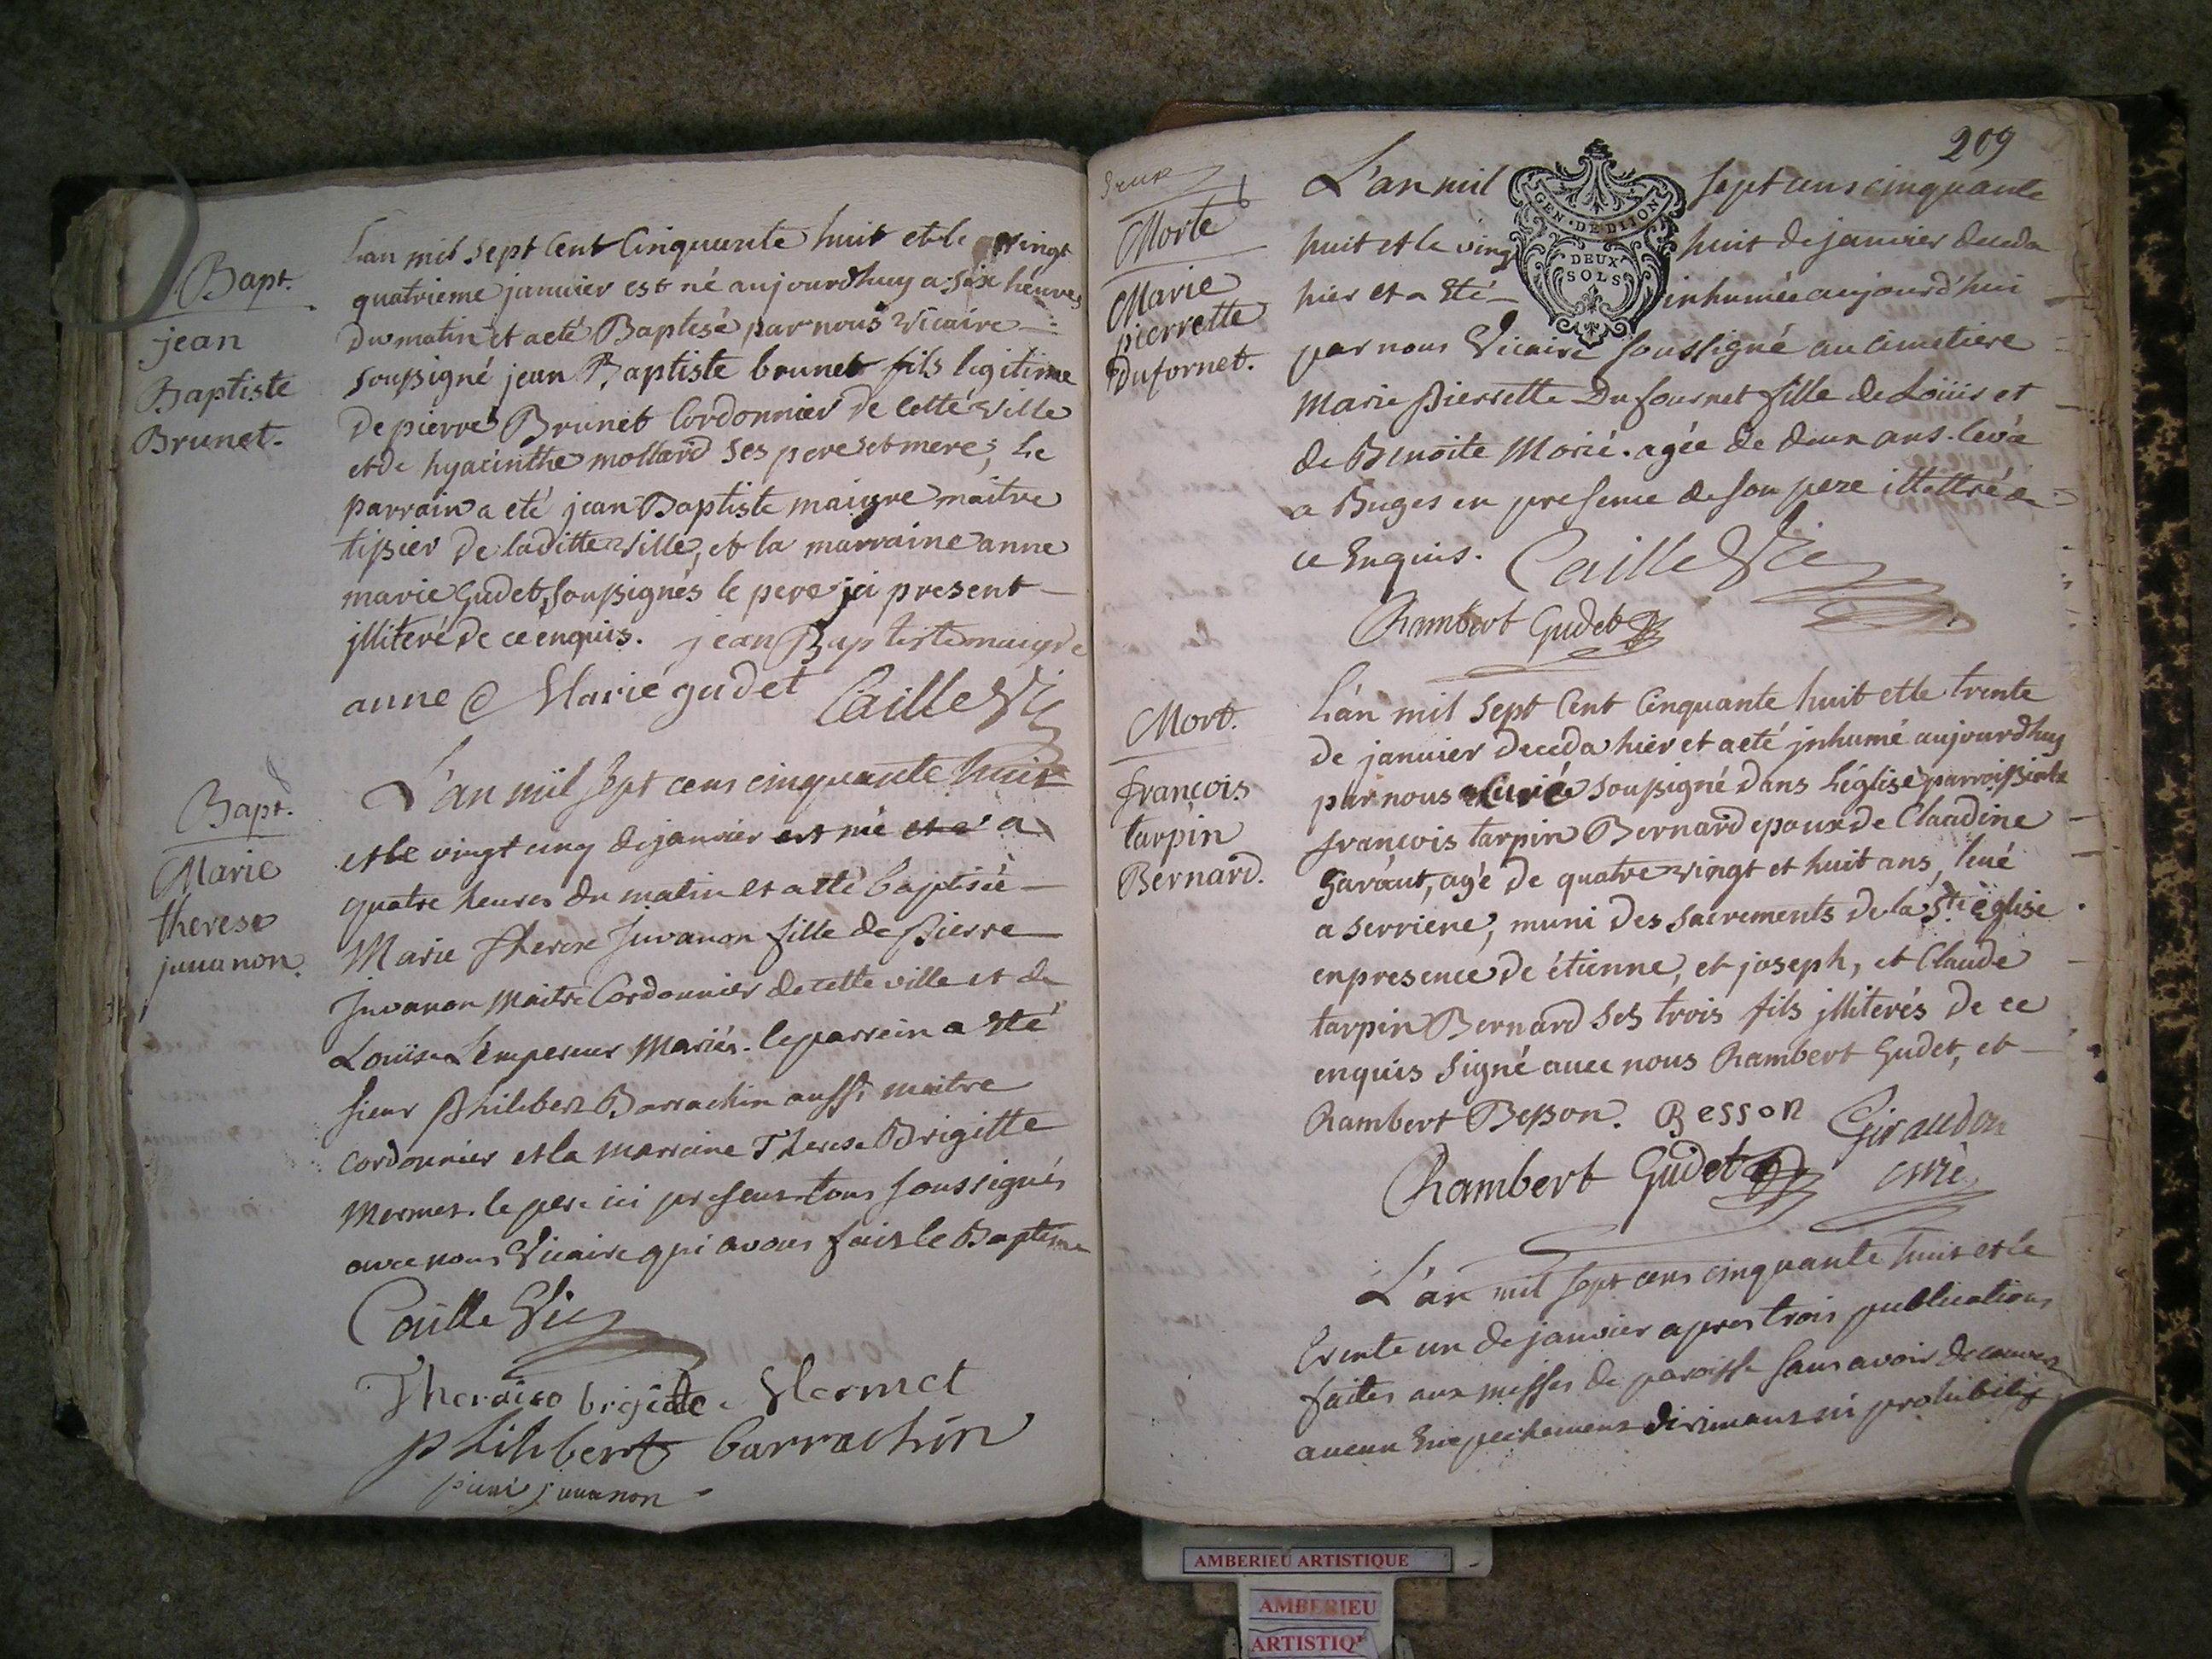 Bapt.
jean
Baptiste
Brunet.
L'an mil sept Cent Cinquante huit et le vingt
quatrieme janvier est né aujourdhuy a six héures
du matin et a eté Baptesé par nous vicaire
soussigné jean Baptiste brunet fils legitime
de pierre Brunet Cordonnier de cette ville
et de hyacinthe mollard ses pere et mere; Le
parrain a eté jean Baptiste maigre maitre
tissier de laditte ville, et la marraine anne
marie Gudet, soussignés le pere ici present
jlliteré de ce enquis. jean Baptiste maigre
anne Marie gudet Caille Vic
Bapt.
Marie
therese
juuanon.
L'an mil sept cens cinquante huit
et le vingt cinq de janvier est née et a
quatre heures du matin et a eté baptisée
Marie Therese Juvanon fille de Pierre
Juvanon Maitre Cordonnier de cette ville et de
Louise L'empereur Mariés. le parrein a eté
sieur Philibert Barrachin aussi maitre
cordonnier et la marraine Therese Brigitte
Mermet. le pere ici present tous soussignés
avec nous Vicaire qui avons fait le Bapteme
Caille Vic
Theraise brigitte Mermet
philibert barrachin
juuanon
209
deux
GEN. DE DIJON
DEUX
SOLS
Morte
Marie
pierrette
dufornet.
L'an mil sept cens cinquante
huit et le vingt huit de janvier deceda
hier et a eté inhumée aujourd'hui
par nous Vicaire soussigné au cimetiere
Marie Pierrette Dufournet fille de Loüis et
de Benoite Morié. agée de deux ans. levée
a Buges en presence de son pere illettré de
ce Enquis. Caille Vic
Rambert Gudet
Mort.
françois
tarpin
Bernard.
L'an mil sept Cent Cinquante huit et le trente
de janvier deceda hier et a eté jnhumé aujourdhuy
par nous Curé soussigné dans L'église parroissiale
françois tarpin Bernard epoux de Claudine
Garaut, agé de quatre vingt et huit ans, leué
a serriere, muni des sacrements de la Ste église
en presence de étienne, et joseph, et Claude
tarpin Bernard ses trois fils jlliterés de ce
enquis signé auec nous Rambert Gudet, et
Rambert Besson. Besson Giraudon
Rambert Gudet curé
L'an mil sept cens cinquante huit et le
trente un de janvier apres trois publications
faites aux messes de paroisse sans avoir decouvert
aucun Empechement dirimant ni prohibitif
AMBERIEU ARTISTIQUE
AMBERIEU
ARTISTIQ